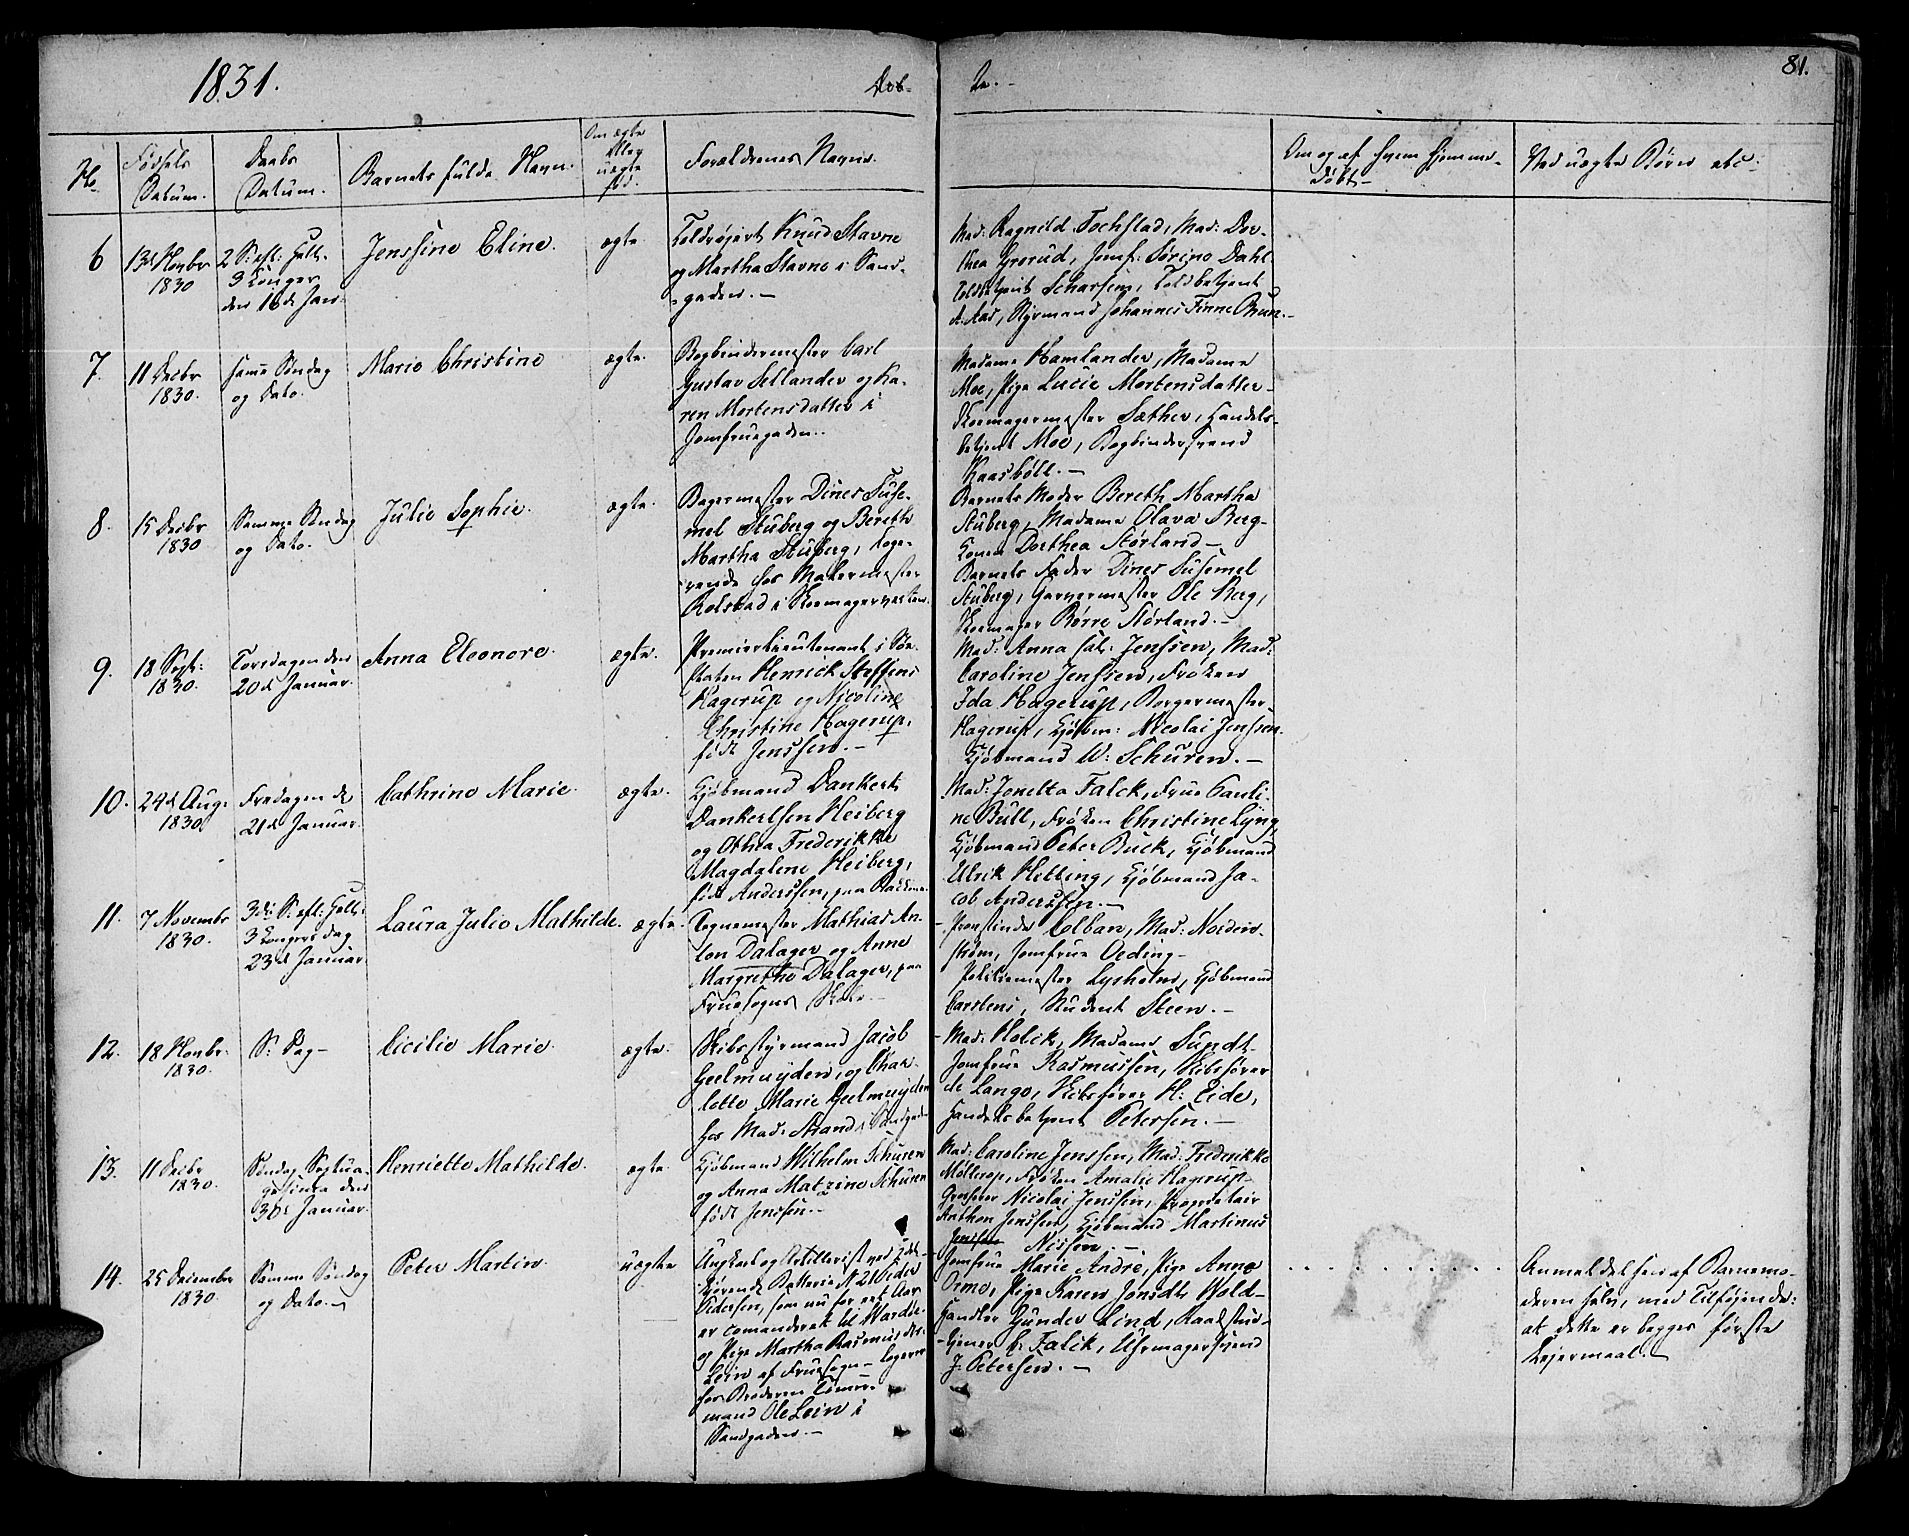 1831.
Døb-
te.-
81.
No
Fødsels
Datum.
Daabs
Datum.
Barnets fulde Navn.
Om ægte
eller
uægte
fød.
Forældrenes Navne.
Om og af hvem hjemme-
døbt-
Ved uægte Børn etc:
6
13d Novbr
1830
2 S: eft: Hell:
3 Konger
den 16d Jan:
Jenssine Eline.
ægte.
Toldrojert Knud Stavne
og Martha Stavne i Sand-
gaden.-
Mad: Ragnild Tochstad, Mad: Dor-
thea Grerud, Jomf: Sørine Dahl
Toldbetjent Scharsem, Toldbetjent
A: Aas, Styrmand Johannes Finne Bruun.-
7.
11 Decbr
1830.
samme Søndag
og Dato.
Marie Christine
ægte.
Bogbindermester Carl
Gustav Sellander og Ka-
ren Mortensdatter i
Jomfruegaden.
Madame Hamlander, Madame
Moe, Pige Lucie Mortensdatter-
Skoemagermester Sæther, Handels-
betjent Moe, Bogbindersvend
Kaasbøll.-
8.
15 Decbr
1830
Samme Søndag
og Dato.
Julie Sophie.
ægte.
Bagermester Dines Suse-
mel Stuberg og Bereth
Martha Stuberg, loge-
rende hos Malermester
Rolstad i Skoemagerveiten.
Barnets Moder Bereth Martha
Stuberg, Madame Olava Berg-
Konen Dorthea Størland-
Barnets Fader Dines Susemel
Stuberg, Garvermester Ole Berg,
Skoemager Børre Størland.-
9.
18 Sept:
1830.
Torsdagen den
20d Januar.
Anna Eleonore.
ægte.
Premierlieutenant i Søe-
staten Henrich Steffens
Hagerup og Nicoline
Christine Hagerup,
født Jenssen.-
Mad: Anna sal: Jenssen, Mad:
Caroline Jenssen, Frøken
Ida Hagerup, Borgermester
Hagerup, Kjøbm: Nicolai Jenssen.
Kjøbmand W: Schuren.-
10.
24d Aug:
1830.
Fredagen d
21d Januar.
Cathrine Marie.
ægte.
Kjøbmand Dankert
Dankertsen Heiberg
og Othea Frederikke
Magdalene Heiberg,
født Anderssen, paa Bakke.
Mad: Jonetta Falck, Frue Pauli-
ne Bull, Frøken Christine Lyng,
Kjøbmand Peter Buck, Kjøbmand
Ulrik Hetting, Kjøbmand Ja-
cob Anderssen.-
11.
7 Novembr
1830.
3die S: eft: Hell:
3 Kongers dag
23d Januar
Laura Julie Mathilde.
ægte.
Tegnemester Mathias An-
ton Dalager og Anne
Margrethe Dalager, paa
Fruesogns Skole.-
- Provstinde Colban, Mad: Norden-
strøm, Jomfrue Oeding-
Politiemester Lysholm, Kjøbmand
Carstens, Student Steen.-
12.
18 Novbr:
1830.
S: Dag-
Cicilie Marie.
ægte.
Skibsstyrmand Jacob
Geelmuyden, og Char-
lotte Marie Geelmuyden
hos Mad: Strand i Sandgaden
- Mad: Holck, Madame Sundt
Jomfrue Rasmussen, Skibsfører
de Lange, Skibsfører H: Eide,
Handelsbetjent Petersen.-
13.
11 Decbr
1830.
Søndag Septua-
gesima den
30d Januar.
Henriette Mathilde.
ægte.
Kjøbmand Wilhelm Schuren
og Anna Matzine Schuren
født Jenssen.
Mad: Caroline Jenssen, Mad: Frederikke
Møllerop, Frøken Amalie Hagerup-
Grosserer Nicolai Jenssen, Proprietair
Anthon Jenssen, Kjøbmand Martinus
Jenssen Nissen.-
14.
25 December
1830.
Samme Søndag
og Dato.-
Peter Martin.
uægte
Ungkarl og Artillerist ved Edel-
Batterie N 2 Peder
Pedersen, som nu for eet Aar
er comanderet til Wardøe
og Pige Martha Rasmusdtr
Lein af Fruesogn- logerer
hos Broderen Tømer-
mand Ole Lein i
Sandgaden.-
Jomfrue Marie André, Pige Anne
Ormo, Pige Karen Jonsdtr Wold-
Handler Gunder Lind, Raadstue-
tjener C: Falck, Uhrmagersvend
J: Petersen.-
Anmeldelsen af Barnemo-
deren selv, med Tilføjende:
at dette er begges første
Lejermaal.-